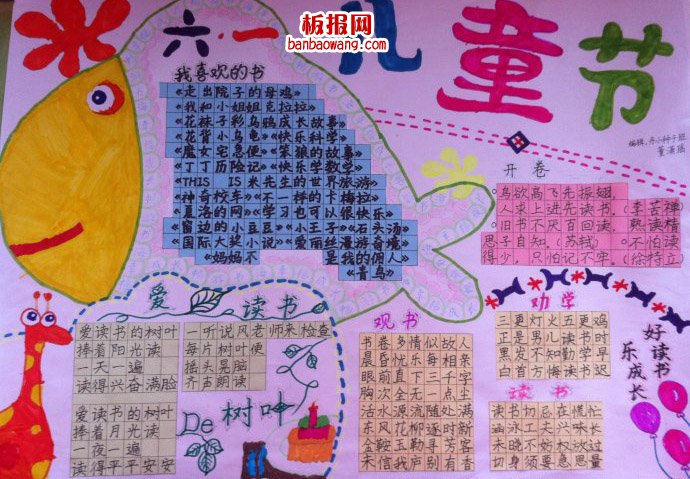 板报网
banbaowang.com
六·一儿童节
编辑:
我喜欢的书
《走出院子的母鸡》
《我和小姐姐克拉拉》
《花袜子彩乌鸦成长故事》
《花背小乌龟》《快乐科学》
《魔女宅急便》《笨狼的故事》
《丁丁历险记》《快乐学数学》
《THIS IS 米先生的世界旅游》
《神奇校车》《不一样的卡梅拉》
《夏洛的网》《学习也可以很快乐》
《窗边的小豆豆》《小王子》《石头汤》
《国际大奖小说》《爱丽丝漫游奇境》
《妈妈不是我的佣人》
《青鸟》
开卷
鸟欲高飞先振翅,
人求上进先读书。(李苦禅)
旧书不厌百回读,熟读精
思子自知。(苏轼)不怕读
得少,只怕记不牢。(徐特立)
爱读书
De树叶
爱读书的树叶
捧着阳光读
一天一遍
读得兴奋满脸
爱读书的树叶
捧着月光读
一夜一遍
读得平平安安
一听说风老师来检查
每片树叶便
摇头晃脑
齐声朗读
观书
书卷多情似故人
晨昏忧乐每相亲
眼前直下三千字
胸次全无一点尘
活水源流随处满
东风花柳逐时新
金鞍玉勒寻芳客
未信我庐别有春
劝学
三更灯火五更鸡
正是男儿读书时
黑发不知勤学早
白首方悔读书迟
读书
读书切忌在慌忙
涵泳工夫兴味长
未晓不妨权放过
切身须要急思量
好读书
乐成长